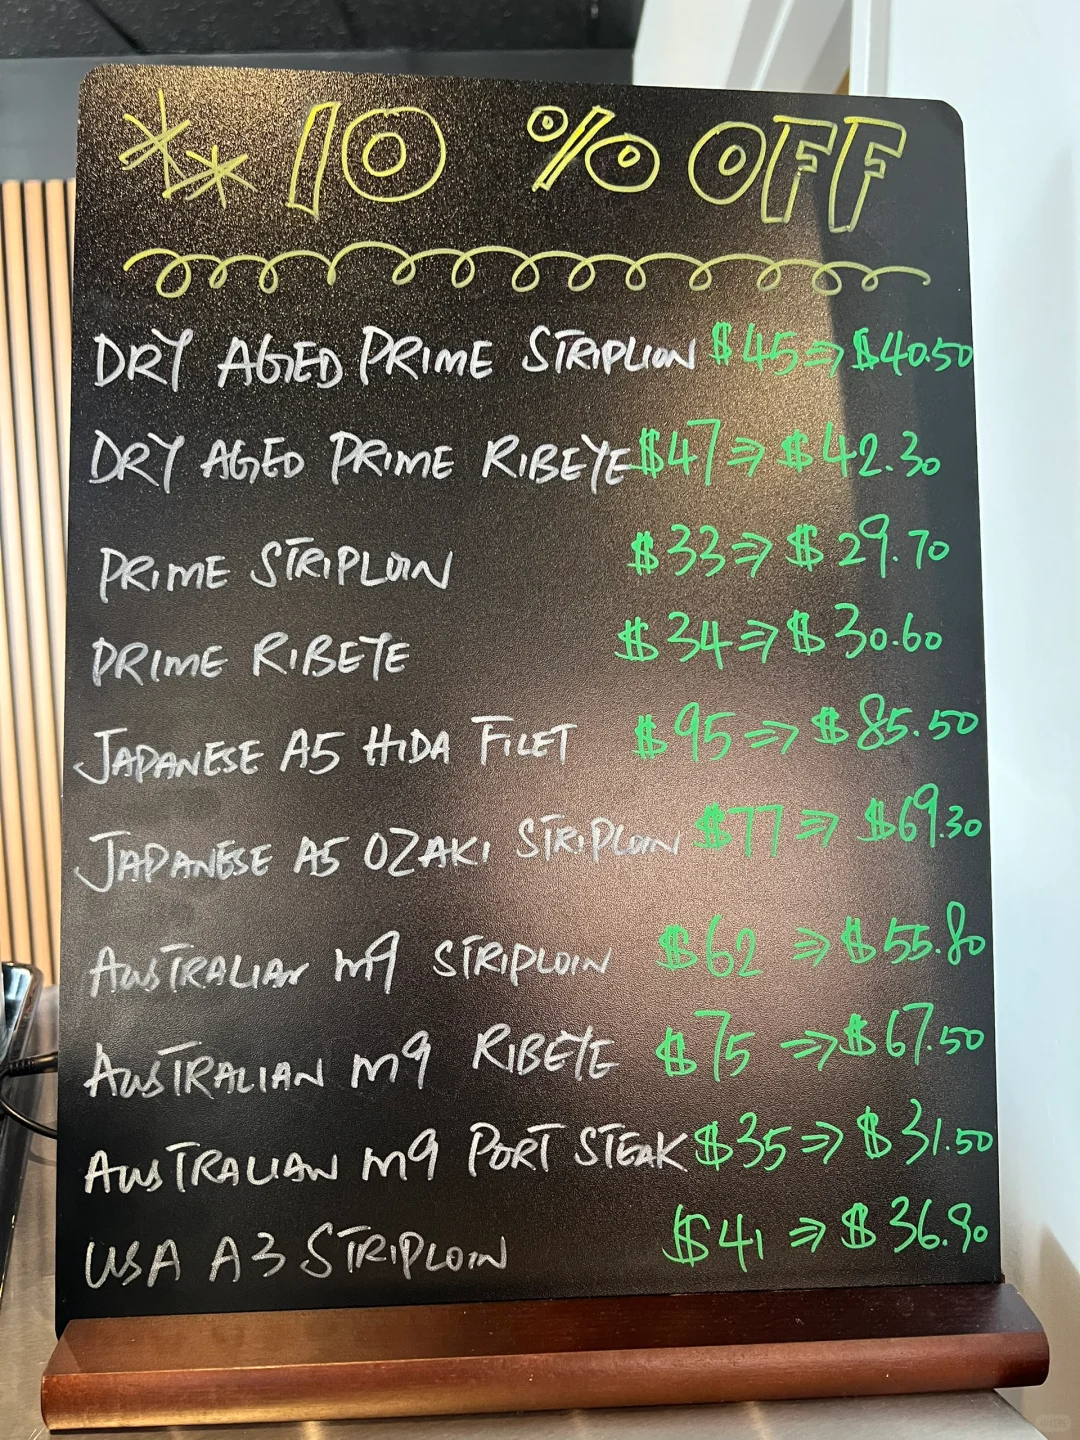 ** 10 % OFF
DRY AGED PRIME STRIPLION $45 ⇒ $40.50
DRY AGED PRIME RIBEYE $47 ⇒ $42.30
PRIME STRIPLOIN $33 ⇒ $29.70
PRIME RIBEYE $34 ⇒ $30.60
JAPANESE A5 HIDA FILET $95 ⇒ $85.50
JAPANESE A5 OZAKI STRIPLOIN $77 ⇒ $69.30
AUSTRALIAN M9 STRIPLOIN $62 ⇒ $55.80
AUSTRALIAN M9 RIBEYE $75 ⇒ $67.50
AUSTRALIAN M9 PORT STEAK $35 ⇒ $31.50
USA A3 STRIPLOIN $41 ⇒ $36.90